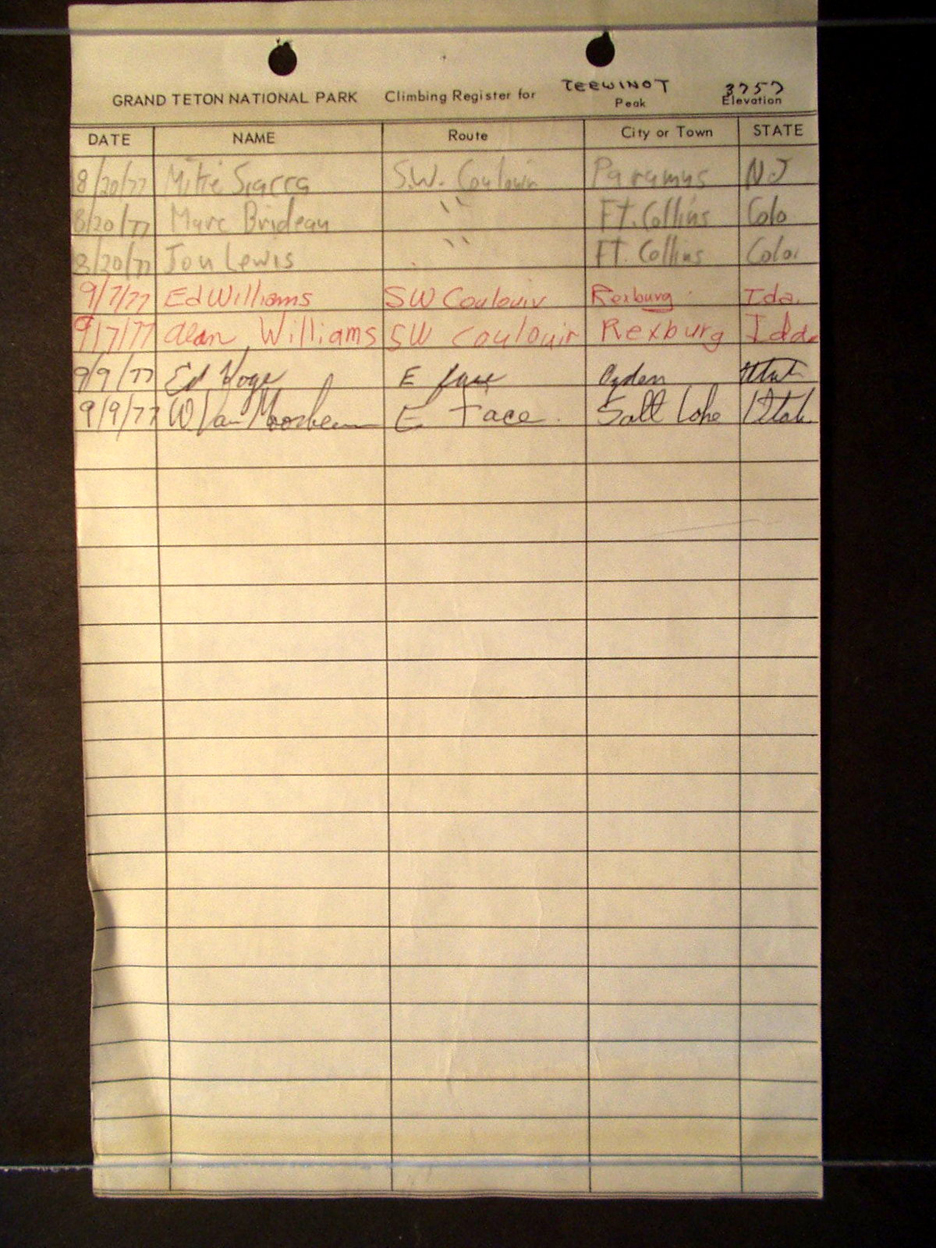 GRAND TETON NATIONAL PARK Climbing Register for TEEWINOT Peak 3757 Elevation
DATE NAME Route City or Town STATE
8/20/77 Mike Siacca S.W. Couloir Paramus NJ
8/20/77 Marc Brideau " Ft. Collins Colo
8/20/77 Jon Lewis " Ft. Collins Colo.
9/7/77 Ed Williams SW Couloir Rexburg Ida.
9/7/77 Alan Williams SW Coulouir Rexburg Ida.
9/9/77 Ed E face Ogden Utah
9/9/77 W Van E Face. Salt Lake Utah